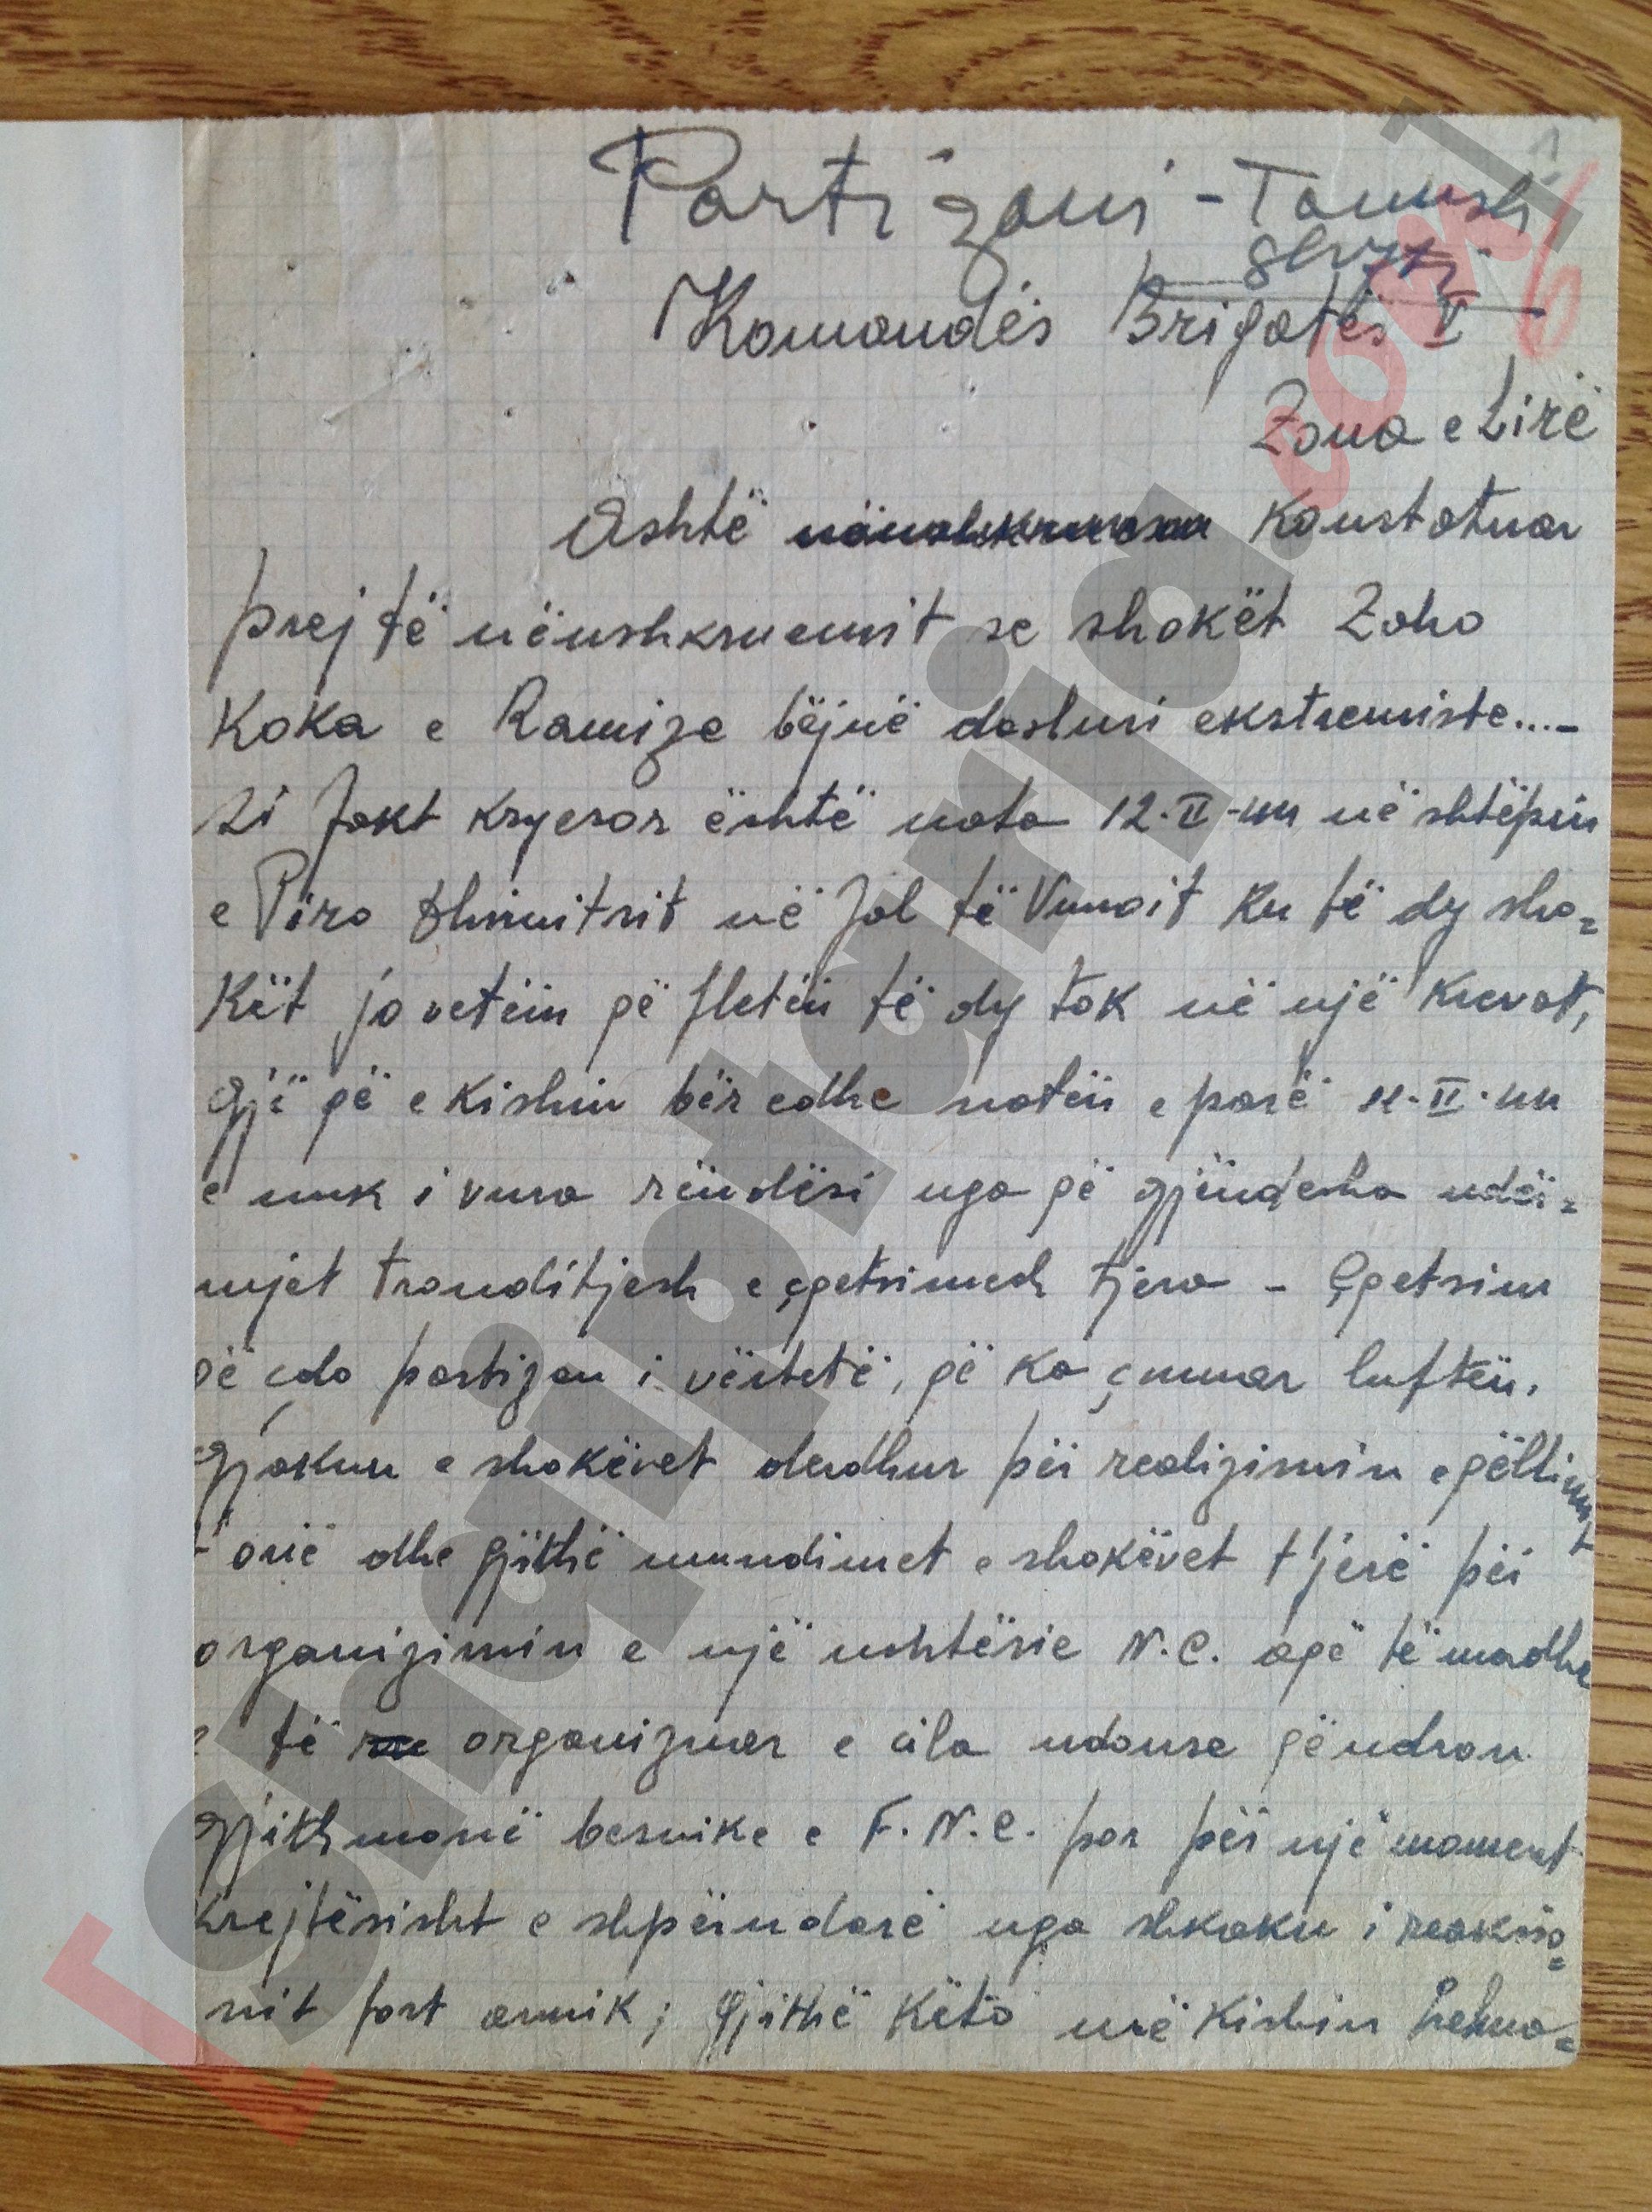 Partizani - Tanush
Shyti
Komandës Brigatës V
Zona e Lirë
Ashtë konstatuar
prej të nënshkruemit se shokët Zaho
Koka e Ramize bëjnë dashuri ekstremiste...-
Si fakt kryesor është nata 12-II-44 në shtëpin
e Piro Dhimitrit në Jal të Vunoit ku të dy sho=
kët jo vetëm që fletën të dy tok në një krevat,
gjë që e kishin bër edhe natën e parë 11-II-44
e nuk i vura rëndësi nga që gjëndesha ndër=
mjet tronditjesh e çpetsimesh tjera - Çpetsim
që çdo partizan i vërtetë, që ka çmuar luftën,
gjakun e shokëvet derdhur për realizimin e qëllimit
t'onë dhe gjithë mundimet e shokëvet t'jerë për
organizimin e një ushtërie N.C. aqë të madhe
e të organizuar e cila ndonse qëndron
gjithmonë besnike e F.N.C. por për një moment
krejtësisht e shpërndarë nga shkaku i reaksio=
nit fort armik; Gjithë këto më kishin helmo=
[shqiptarja.com]